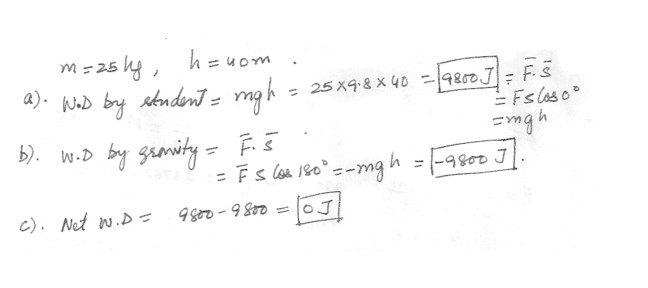 m = 25 kg, h = 40m.
a). W.D by student = mgh = 25 x 9.8 x 40 = 9800 J = F̄. S̄
= FS Cos 0°
= mgh
b). W.D by gravity = F̄. S̄
= F̄ S Cos 180° = -mgh = -9800 J.
c). Net W.D = 9800 - 9800 = 0 J